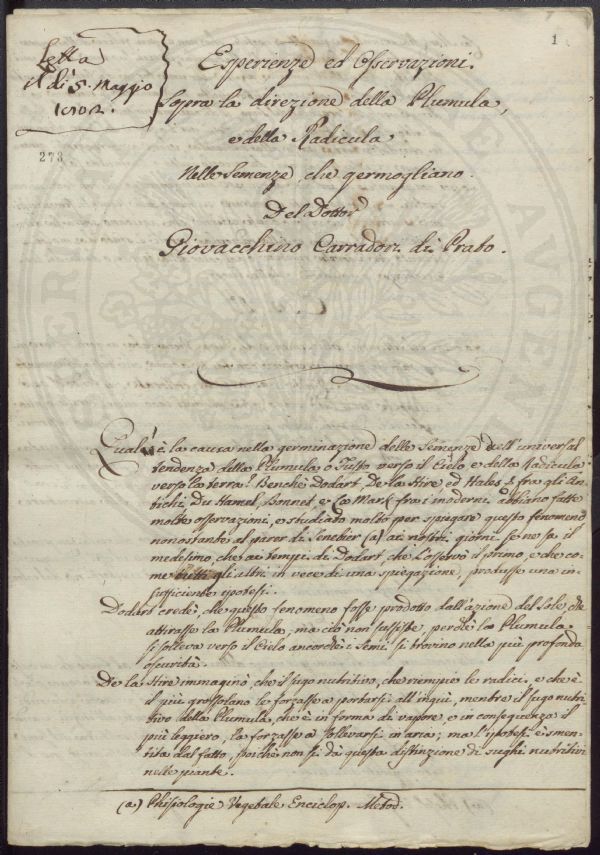 Letta
il dì 5. Maggio
1802.
1
273
Esperienze ed Osservazioni.
Sopra la direzione della Plumula,
e della Radicula
Nelle Semenze che germogliano.
Del Dottor
Giovacchino Carradori di Prato.
Qual'è la causa nella germinazione delle Semenze dell'universal
tendenza della Plumula o Fusto verso il Cielo e della Radicula
verso la terra? Benchè Dodart, De la Hire, ed Hales fra gli An-
tichi, Du Hamel, Bonnet e fra i moderni abbiano fatte
molte osservazioni, e studiato molto per spiegare questo fenomeno
nonostante al parer di Senebier (a) ai nostri giorni se ne sa il
medesimo, che ai tempi di Dodart, che l'osservò il primo, e che co-
me tutti gli altri in vece di una spiegazione, produsse una in-
sufficiente ipotesi.
Dodart credè, che questo fenomeno fosse prodotto dall'azione del Sole, che
attirasse la Plumula; ma ciò non sussiste, perchè la Plumula
si solleva verso il Cielo ancorchè i Semi si trovino nella più profonda
oscurità.
De la Hire immaginò che il sugo nutritivo, che riempie le radici, e che è
il più grossolano le forzasse a portarsi all'ingiù, mentre il sugo nutri-
tivo della Plumula, che è in forma di vapore, e in conseguenza il
più leggiero, la forzasse a sollevarsi in aria; ma l'ipotesi è smen-
tita dal fatto, poichè non si dà questa distinzione di sughi nutritivi
nelle piante.
(a) Phisiologie Vegetale Enciclop. Method.